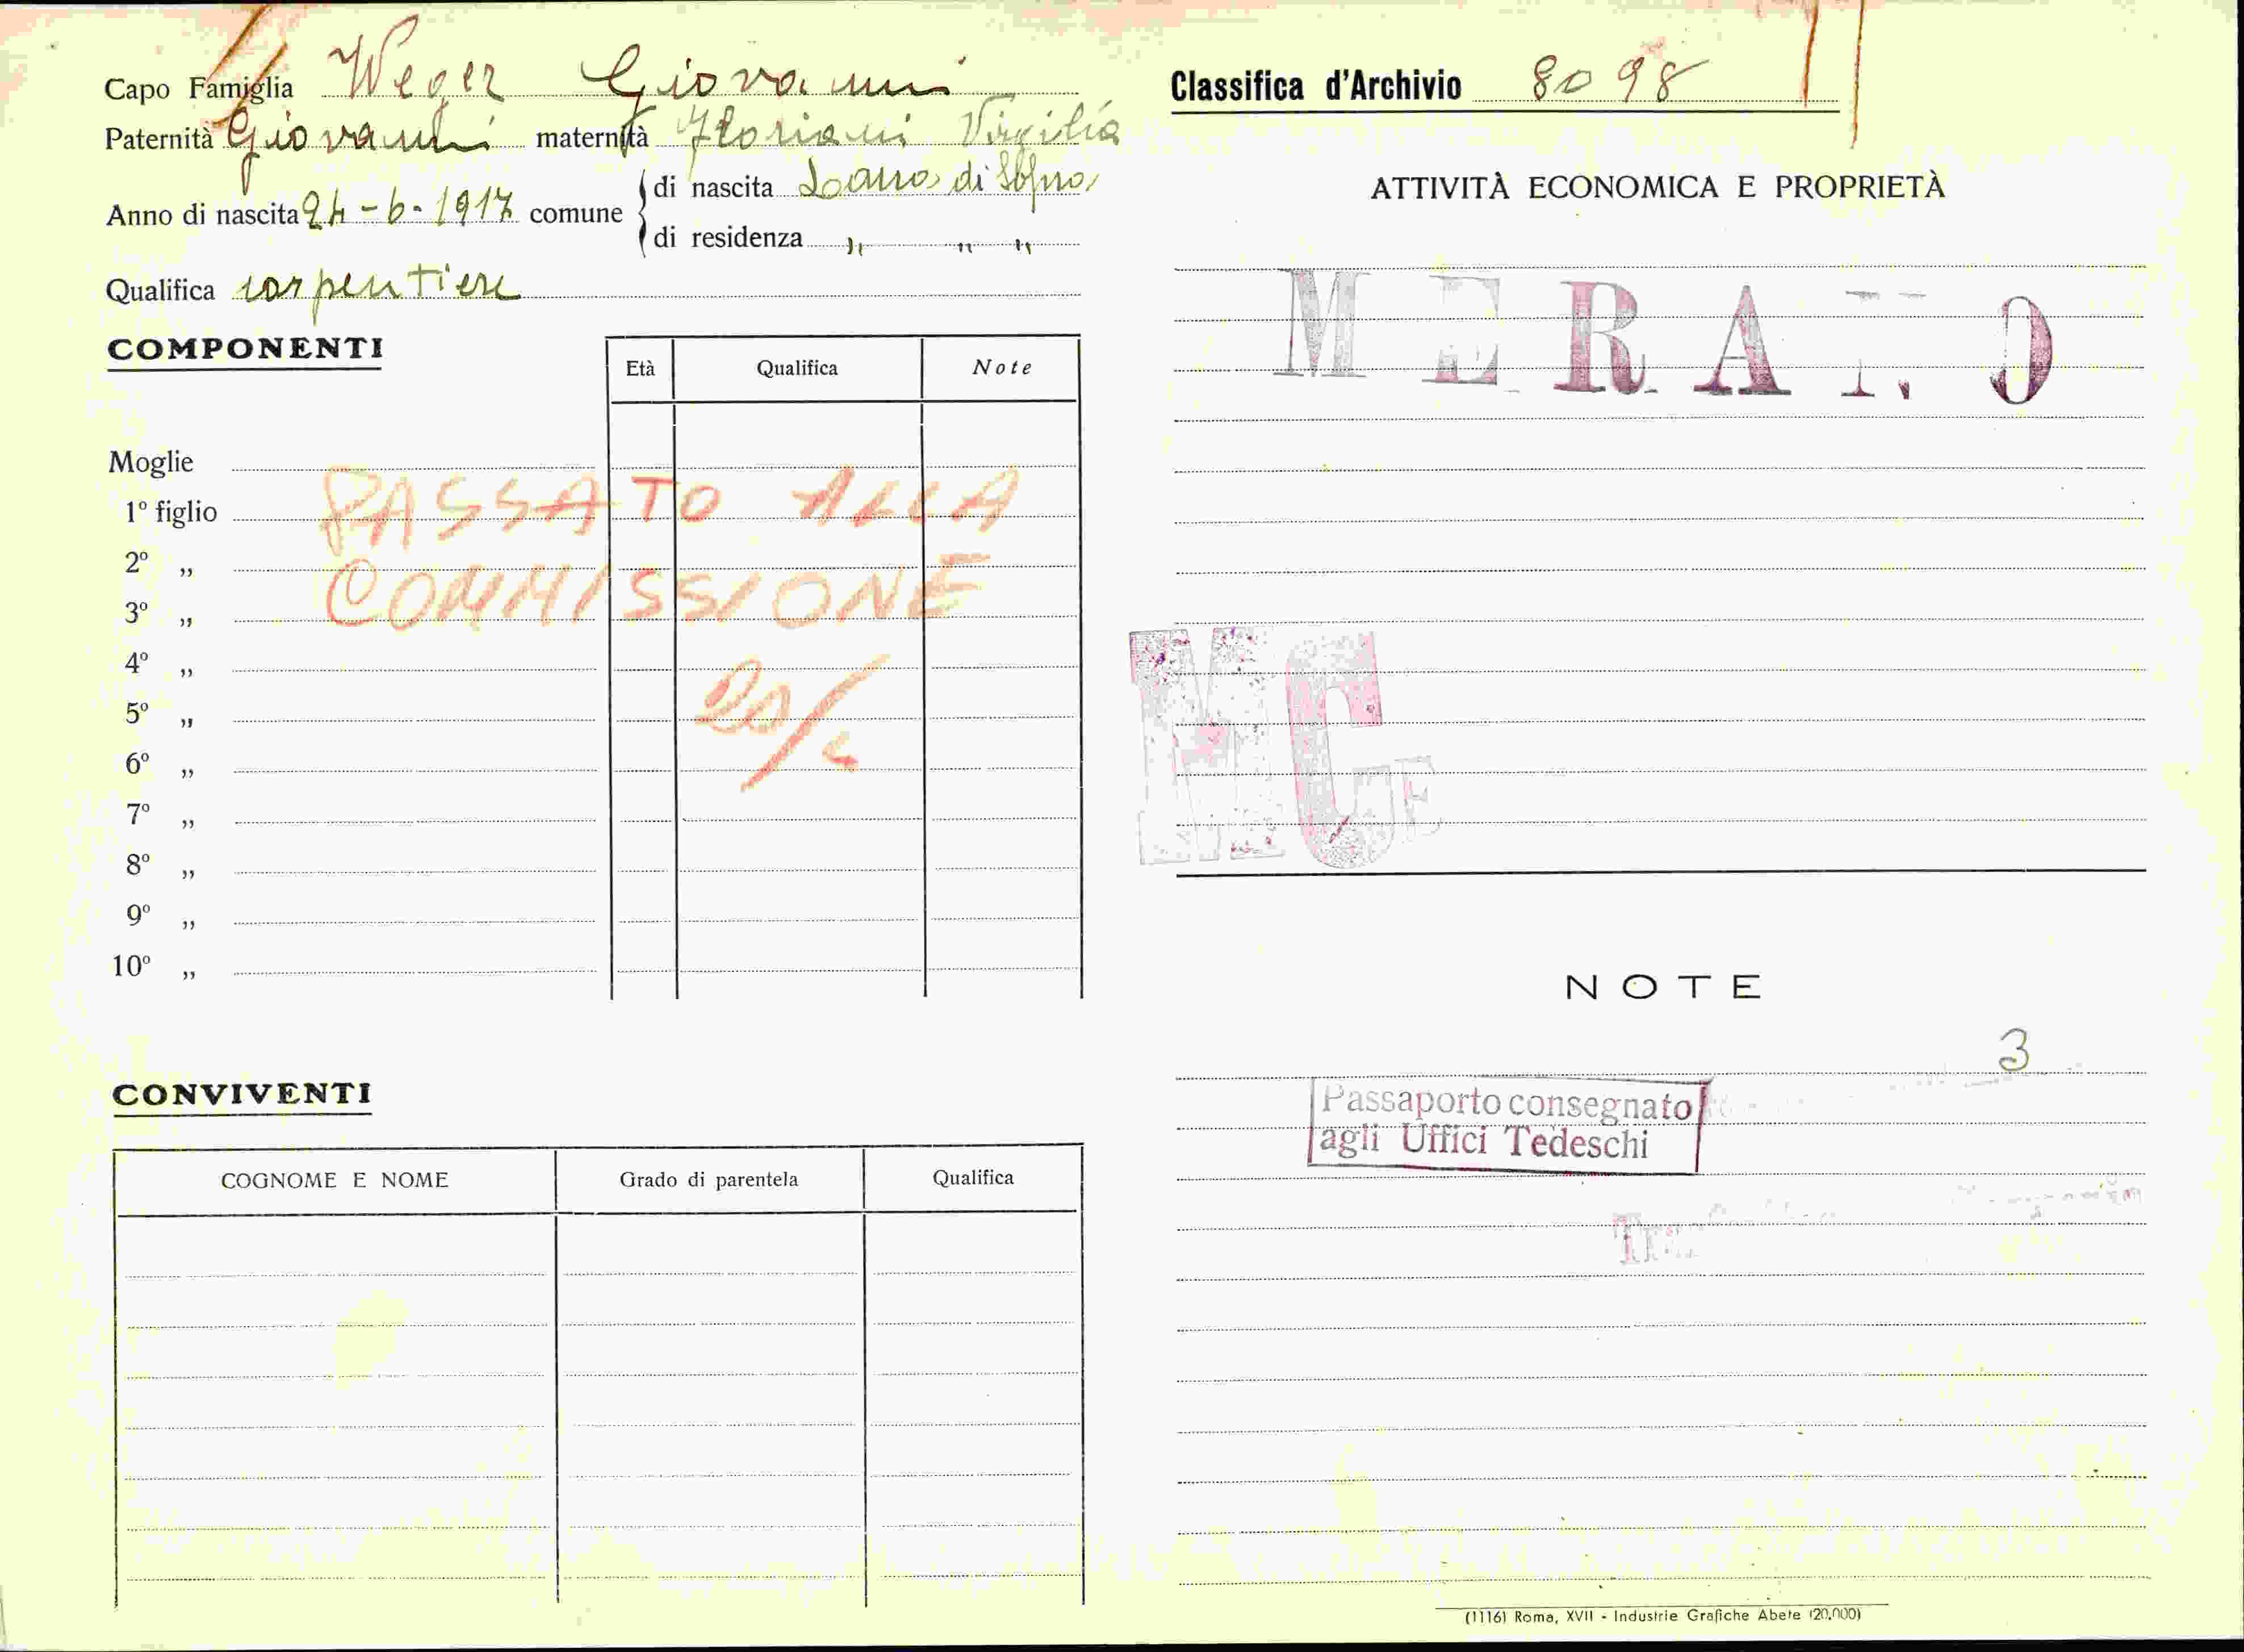 Capo Famiglia Weger Giovanni
Paternità Giovanni maternità Floriani Virgilia
Anno di nascita 24-6-1917 comune
di nascita di
di residenza " " "
Qualifica carpentiere
COMPONENTI
Età Qualifica Note
Moglie
1º figlio
2º „
3º „
4º „
5º „
6º „
7º „
8º „
9º „
10º „
PASSATO ALLA
COMMISSIONE
CONVIVENTI
COGNOME E NOME Grado di parentela Qualifica
Classifica d'Archivio 8098
ATTIVITÀ ECONOMICA E PROPRIETÀ
MERANO
NOTE
3
Passaporto consegnato
agli Uffici Tedeschi
(1116) Roma, XVII - Industrie Grafiche Abete (20.000)